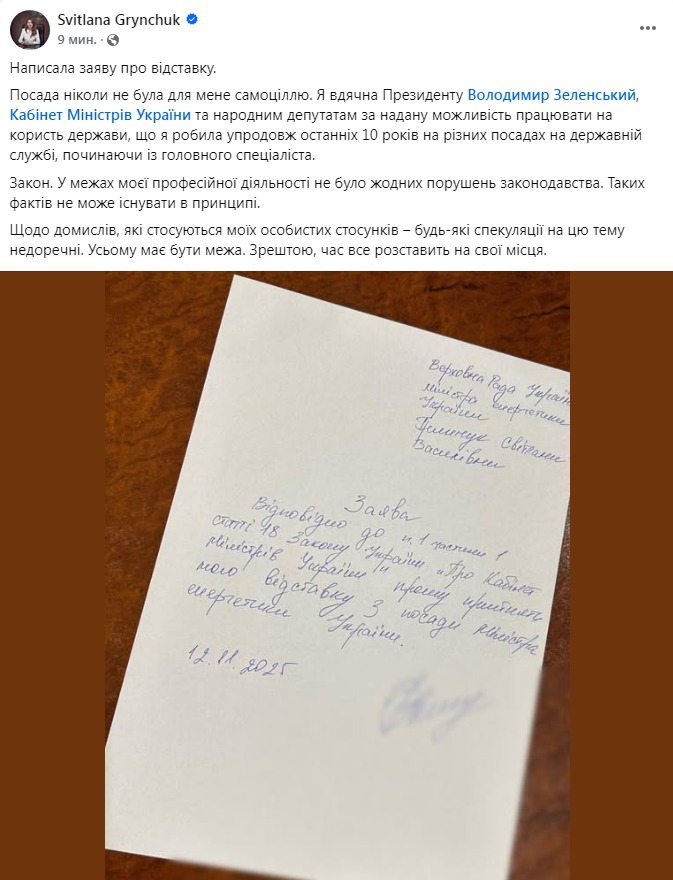 Svitlana Grynchuk
9 мин.
Написала заяву про відставку.
Посада ніколи не була для мене самоціллю. Я вдячна Президенту Володимир Зеленський,
Кабінет Міністрів України та народним депутатам за надану можливість працювати на
користь держави, що я робила упродовж останніх 10 років на різних посадах на державній
службі, починаючи із головного спеціаліста.
Закон. У межах моєї професійної діяльності не було жодних порушень законодавства. Таких
фактів не може існувати в принципі.
Щодо домислів, які стосуються моїх особистих стосунків – будь-які спекуляції на цю тему
недоречні. Усьому має бути межа. Зрештою, час все розставить на свої місця.
Верховна Рада Україн
міністра енергетики
України
Гринчук Світлани
Василівни
Заява
Відповідно до п.1 частини 1
статті 18 Закону України „Про Кабінет
Міністрів України" прошу прийняти
мою відставку з посади Міністра
енергетики України.
12.11.2025